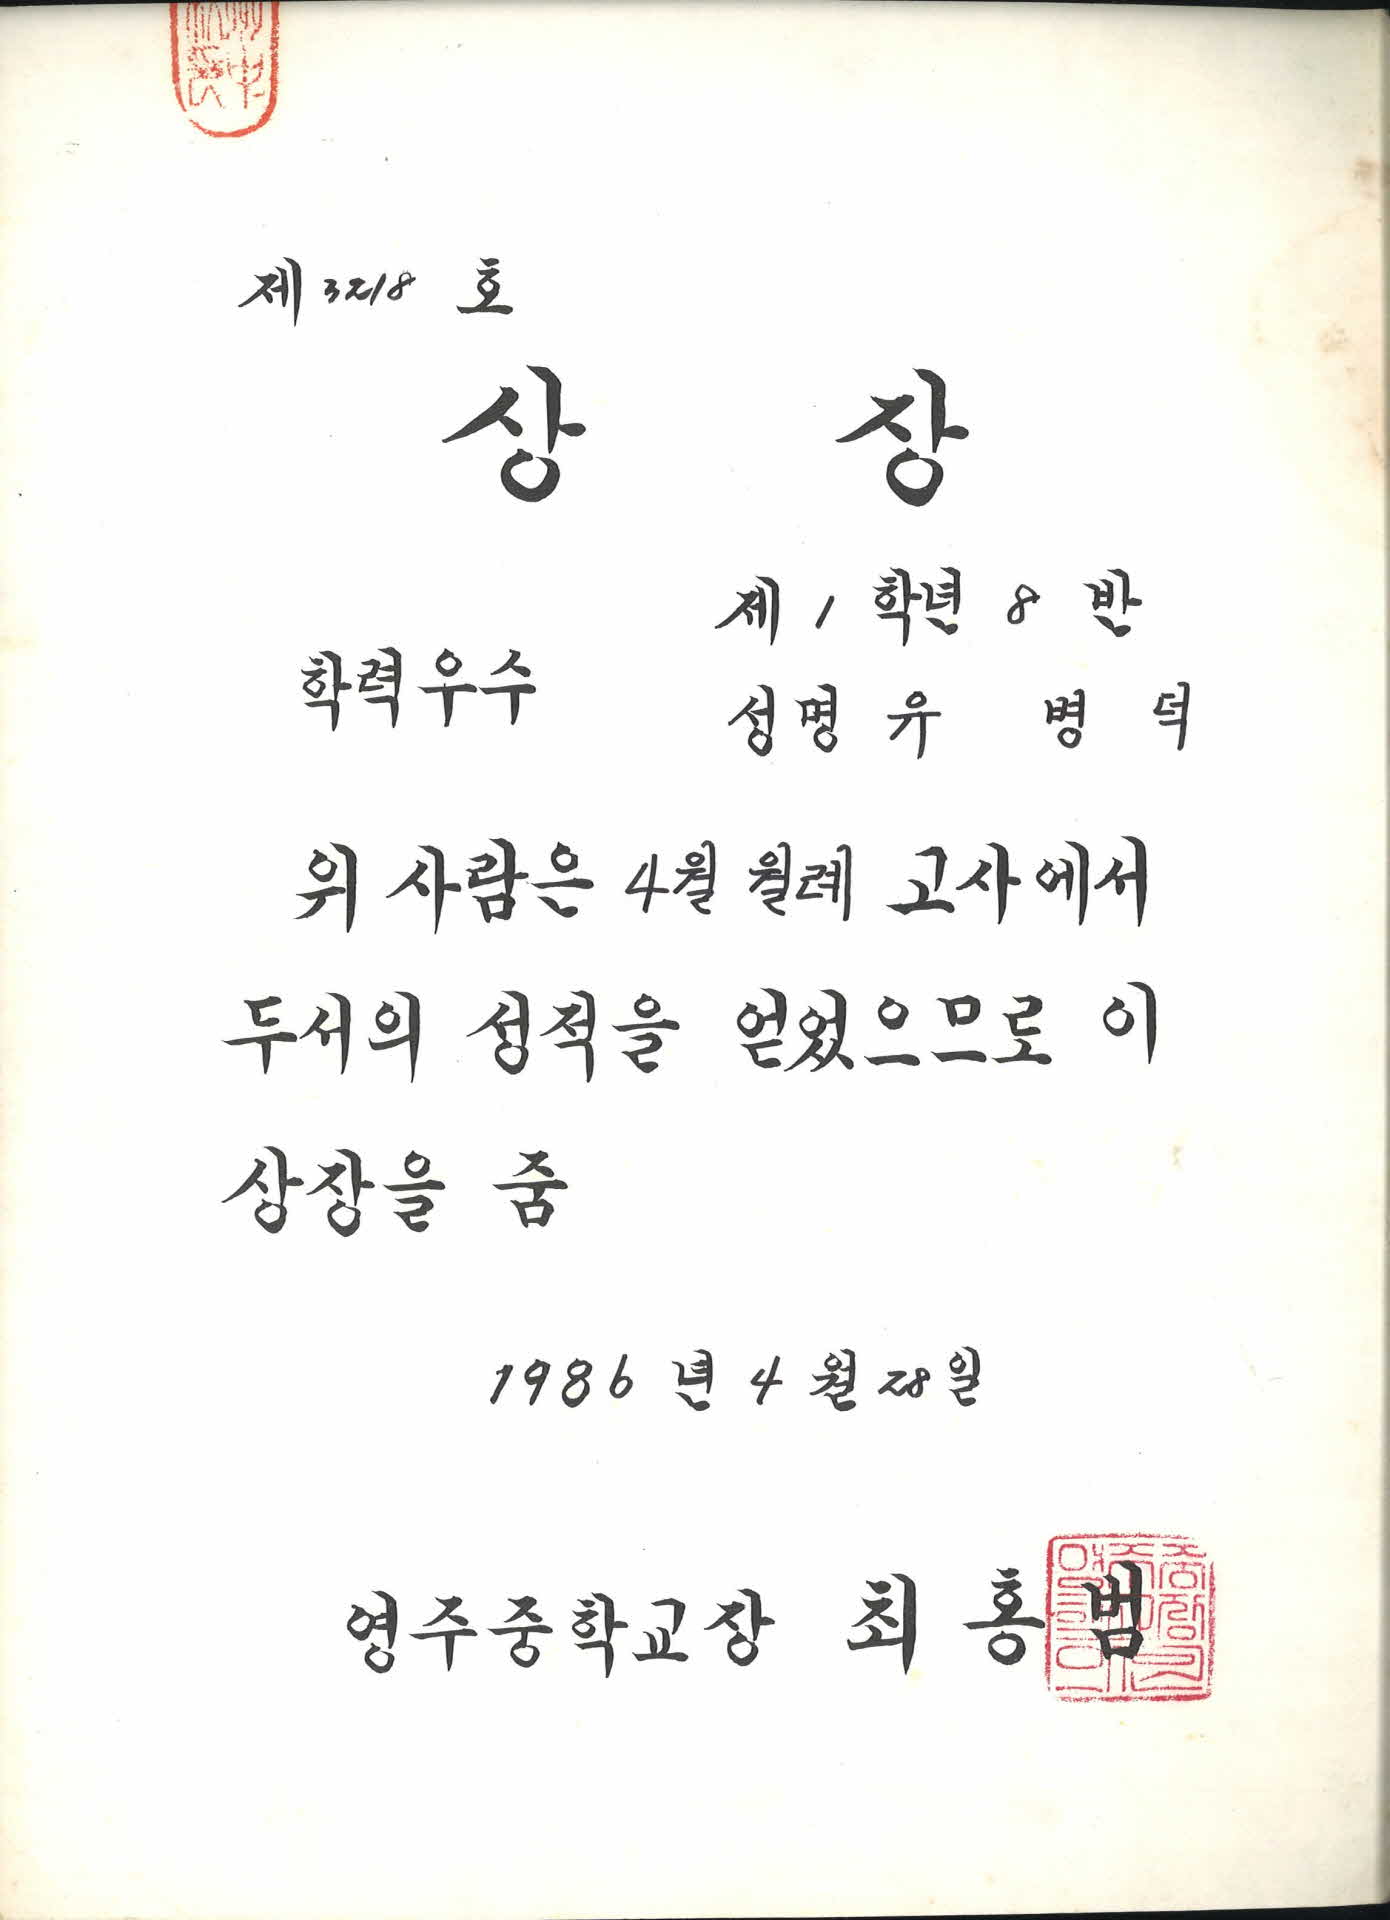 제 3218 호
상 장
제 1 학년 8 반
학력우수
성명 유 병 덕
위 사람은 4월 월례 고사에서
두서의 성적을 얻었으므로 이
상장을 줌
1986 년 4 월 28 일
영주중학교장 최 홍 범